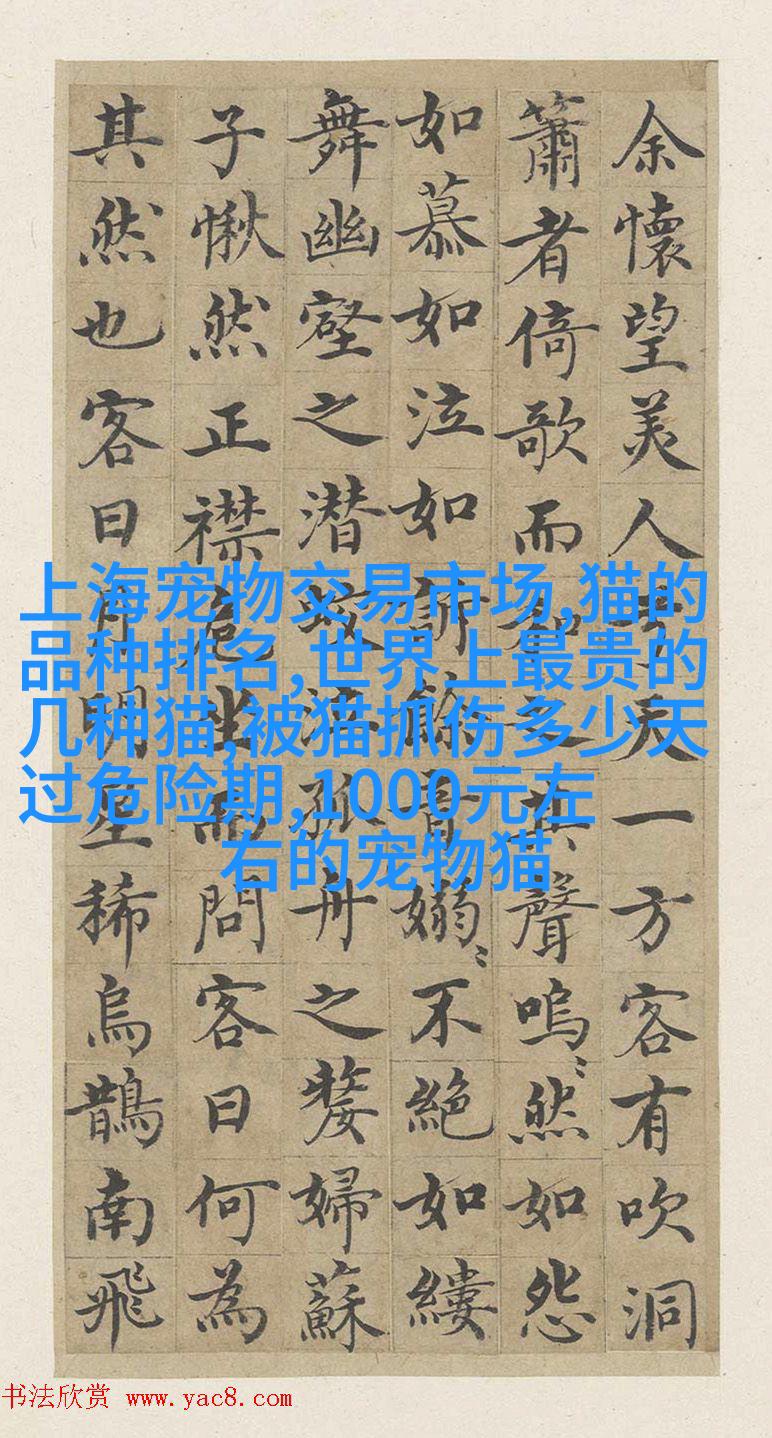 余懷望美人兮天一方客有吹洞
簫者倚歌而和之其聲嗚〻然如怨
如慕如泣如訴餘音嫋〻不絕如縷
舞幽壑之潜蛟泣孤舟之嫠婦蘇
子愀然正襟危坐而問客曰何為
其然也客曰月明星稀烏鵲南飛
上海宠物交易市场,猫的
品种排名,世界上最贵的
几种猫,被猫抓伤多少天
过危险期,1000元左
右的宠物猫
书法欣赏 www.yac8.com